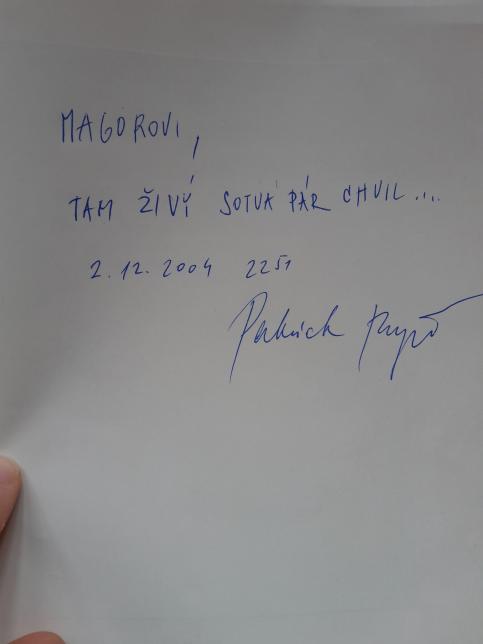 MAGOROVI,
TAM ŽIVÝ SOTVA PÁR CHVIL....
2.12.2004 22 51
Patrick